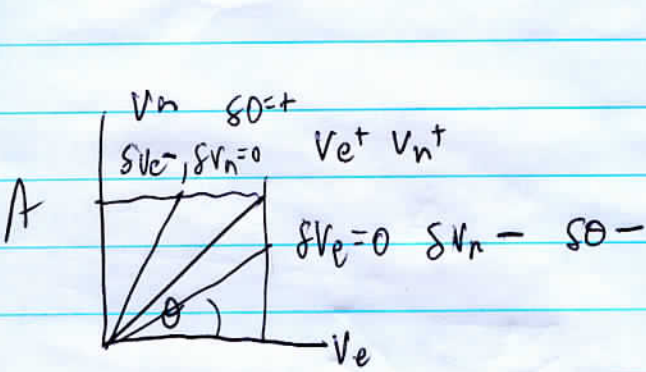 Vn δθ=+
δVe-, δVn=0 Ve+ Vn+
A
δVe=0 δVn - δθ-
θ
Ve